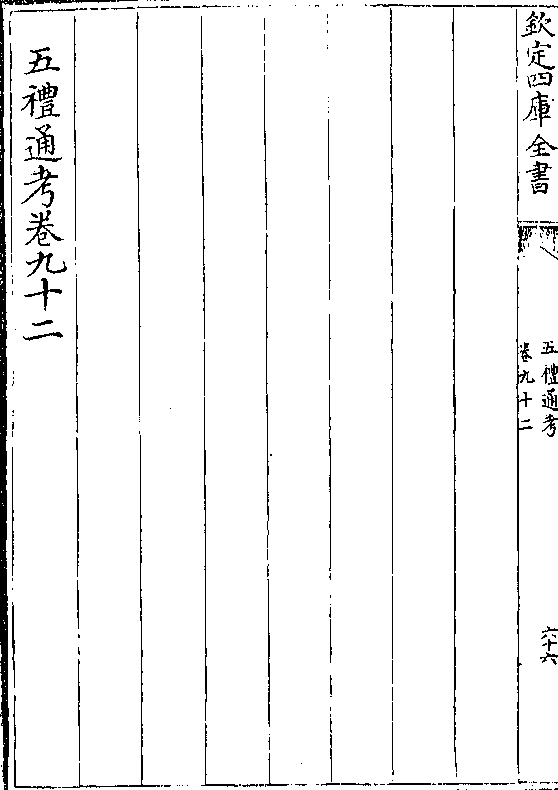 欽定四庫全書
五禮通考
卷九十二
六十六
五禮通考卷九十二